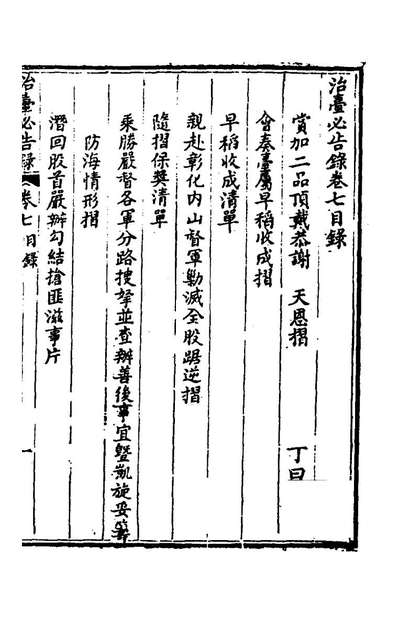 治臺必告錄卷七目錄
賞加二品頂戴恭謝 天恩摺 丁曰
會奏臺屬早稻收成摺
早稻收成清單
親赴彰化內山督軍勦滅全股踞逆摺
隨摺保獎清單
乘勝嚴督各軍分路搜拏並查辦善後事宜暨凱旋妥籌
防海情形摺
潛回股首嚴辦勾結搶匪滋事片
治臺必告錄 卷七目錄 一